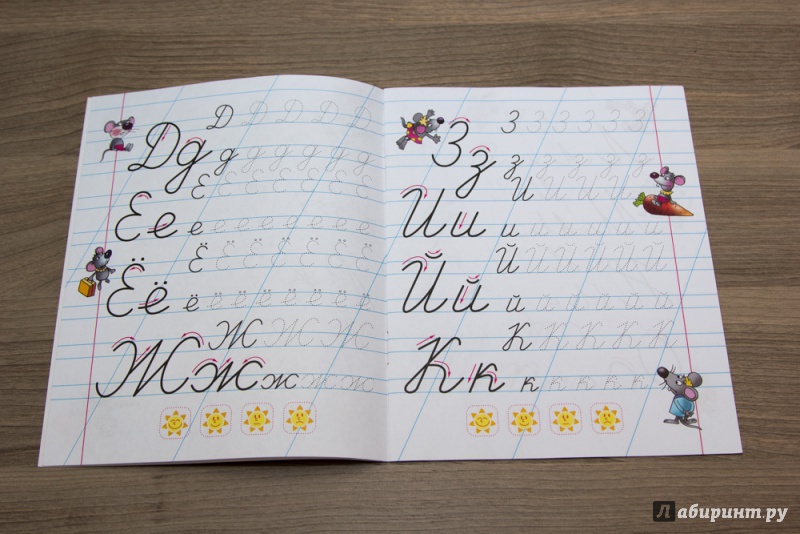 Дд Д Д Д Д Д Д
д д д д д д д
Ее Е Е Е Е Е Е Е
е е е е е е е е
Ёё Ё Ё Ё Ё Ё Ё Ё
ё ё ё ё ё ё ё ё
Жж Ж Ж Ж Ж
ж ж ж
Зз З З З З З З
з з з з з з
Ии И И И И И
и и и и и и
Йй Й Й Й Й Й Й
й й й й й й
Кк К К К К К
к к к к к к
Лабиринт.ру